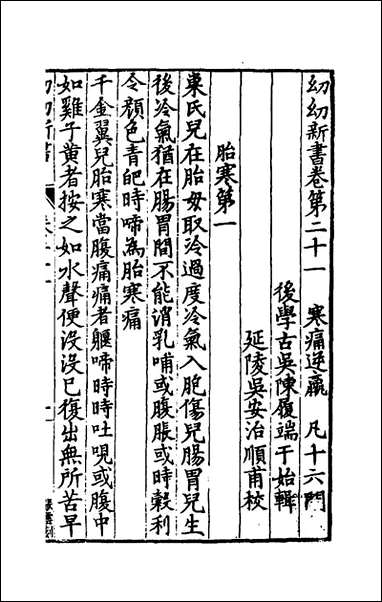 幼幼新書卷第二十一　寒痛逆羸　凡十六門
後學古吳陳履端于始輯
延陵吳安治順甫校
胎寒第一
巢氏兒在胎母取冷過度冷氣入胞傷兒腸胃兒生
後冷氣猶在腸胃間不能消乳哺或腹脹或時穀利
令顏色青䶕時啼為胎寒痛
千金翼兒胎寒當腹痛痛者軀啼時時吐哯或腹中
如雞子黃者按之如水聲便沒沒已復出無所苦早